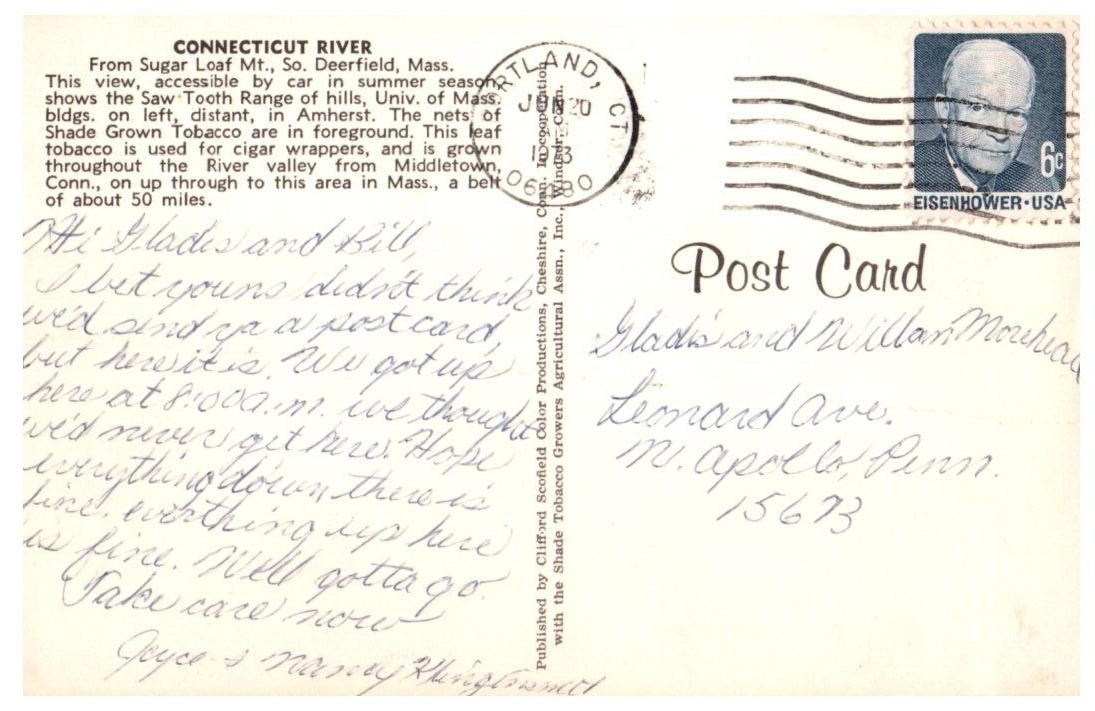 CONNECTICUT RIVER
From Sugar Loaf Mt., So. Deerfield, Mass.
This view, accessible by car in summer season,
shows the Saw Tooth Range of hills, Univ. of Mass.
bldgs. on left, distant, in Amherst. The nets of
Shade Grown Tobacco are in foreground. This leaf
tobacco is used for cigar wrappers, and is grown
throughout the River valley from Middletown,
Conn., on up through to this area in Mass., a belt
of about 50 miles.
Hi Gladis and Bill,
I bet youns didn't think
we'd send ya a postcard,
but here it is. We got up
here at 8:00 a.m. we thought
we'd never get here. Hope
everything down there is
fine. everthing up here
is fine. Well gotta go.
Take care now
Joyce & Nancy
Published by Clifford Scofield Color Productions, Cheshire, Conn. In cooperation
with the Shade Tobacco Growers Agricultural Assn., Inc., Windsor, Conn.
PORTLAND, CT
JUN 20
06480
6c
EISENHOWER·USA
Post Card
Gladis and William Morehead
Leonard Ave.
N. Apollo, Penn.
15673